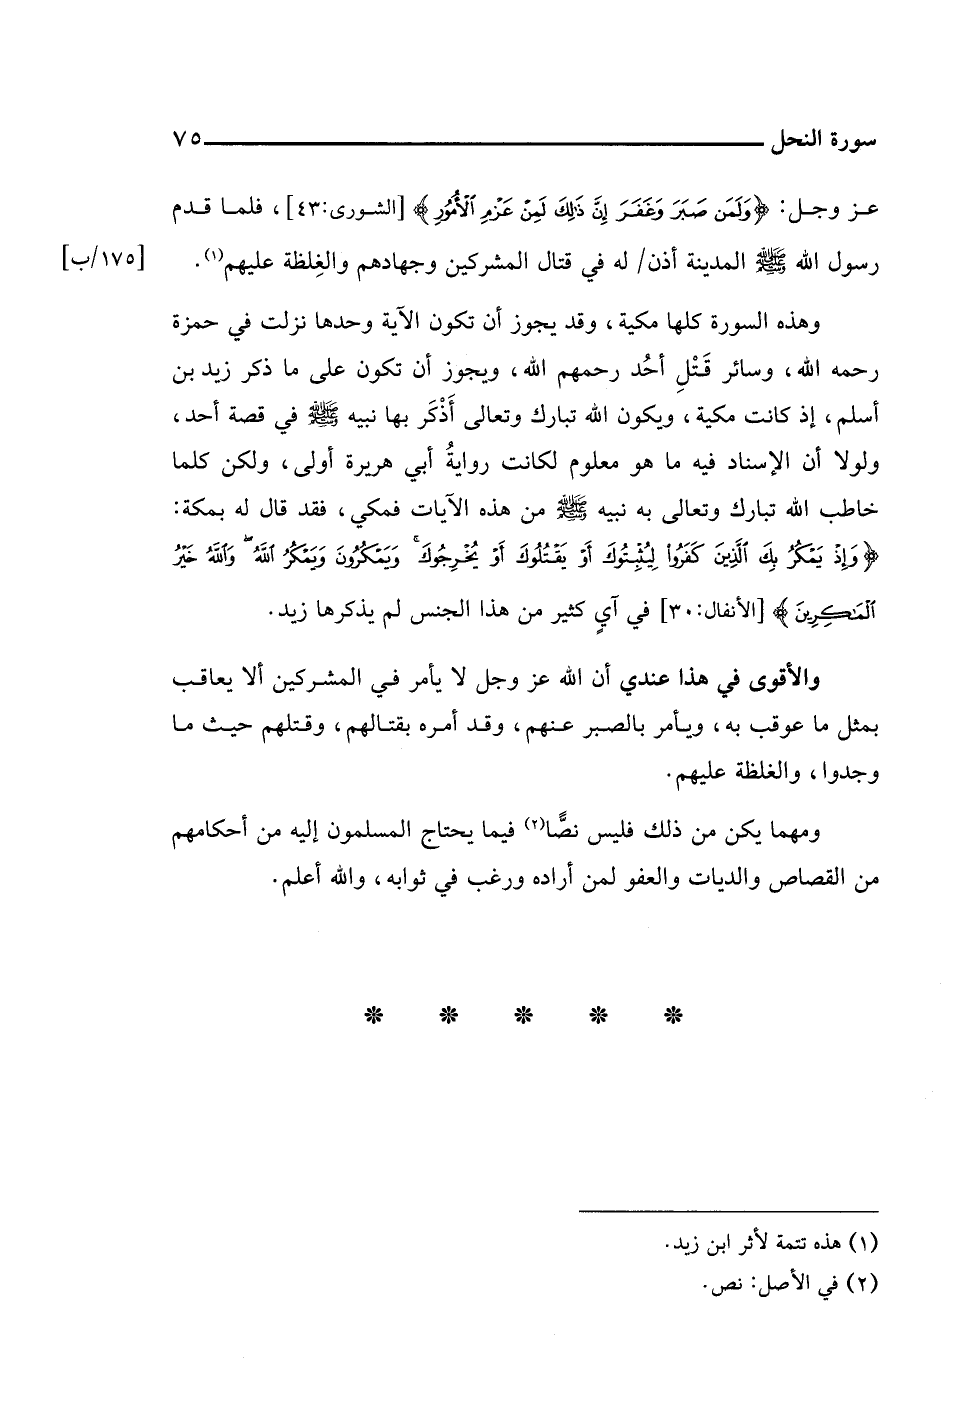 سورة النحل ٧٥
عز وجل: ﴿وَلَمَن صَبَرَ وَغَفَرَ إِنَّ ذَٰلِكَ لَمِنْ عَزْمِ ٱلْأُمُورِ﴾ [الشورى:٤٣]، فلما قدم
رسول الله ﷺ المدينة أذن/ له في قتال المشركين وجهادهم والغِلظة عليهم(١). [١٧٥/ب]
وهذه السورة كلها مكية، وقد يجوز أن تكون الآية وحدها نزلت في حمزة
رحمه الله، وسائر قَتْلِ أحُد رحمهم الله، ويجوز أن تكون على ما ذكر زيد بن
أسلم، إذ كانت مكية، ويكون الله تبارك وتعالى أَذْكَر بها نبيه ﷺ في قصة أحد،
ولولا أن الإسناد فيه ما هو معلوم لكانت روايةُ أبي هريرة أولى، ولكن كلما
خاطب الله تبارك وتعالى به نبيه ﷺ من هذه الآيات فمكي، فقد قال له بمكة:
﴿وَإِذْ يَمْكُرُ بِكَ ٱلَّذِينَ كَفَرُوا۟ لِيُثْبِتُوكَ أَوْ يَقْتُلُوكَ أَوْ يُخْرِجُوكَ ۚ وَيَمْكُرُونَ وَيَمْكُرُ ٱللَّهُ ۖ وَٱللَّهُ خَيْرُ
ٱلْمَـٰكِرِينَ﴾ [الأنفال:٣٠] في آيٍ كثير من هذا الجنس لم يذكرها زيد.
والأقوى في هذا عندي أن الله عز وجل لا يأمر في المشركين ألا يعاقب
بمثل ما عوقب به، ويأمر بالصبر عنهم، وقد أمره بقتالهم، وقتلهم حيث ما
وجدوا، والغلظة عليهم.
ومهما يكن من ذلك فليس نصًّا(٢) فيما يحتاج المسلمون إليه من أحكامهم
من القصاص والديات والعفو لمن أراده ورغب في ثوابه، والله أعلم.
(١) هذه تتمة لأثر ابن زيد.
(٢) في الأصل: نص.